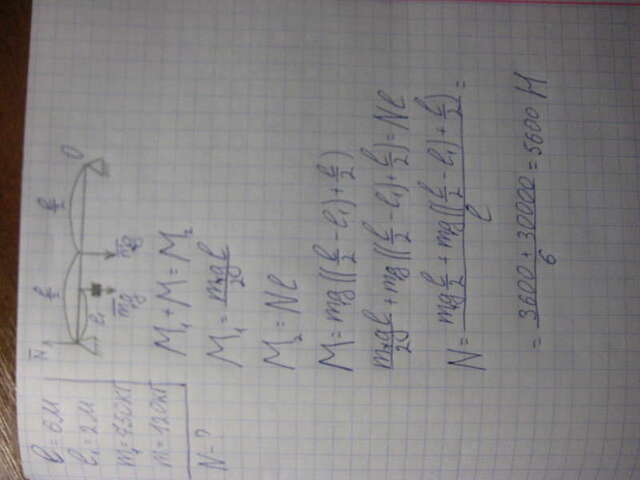 l = 6м
l₁ = 2м
m₁ = 750кг
m = 120кг
N - ?
N̄
l/2
l/2
O
l₁
mg
mg
M₁ + M = M₂
M₁ = m₁gl/2
M₂ = Nl
M = mg((l/2 - l₁) + l/2)
m₁gl/2 + mg((l/2 - l₁) + l/2) = Nl
N = (mg l/2 + mg((l/2 - l₁) + l/2))/l =
= (3600 + 30000)/6 = 5600 Н